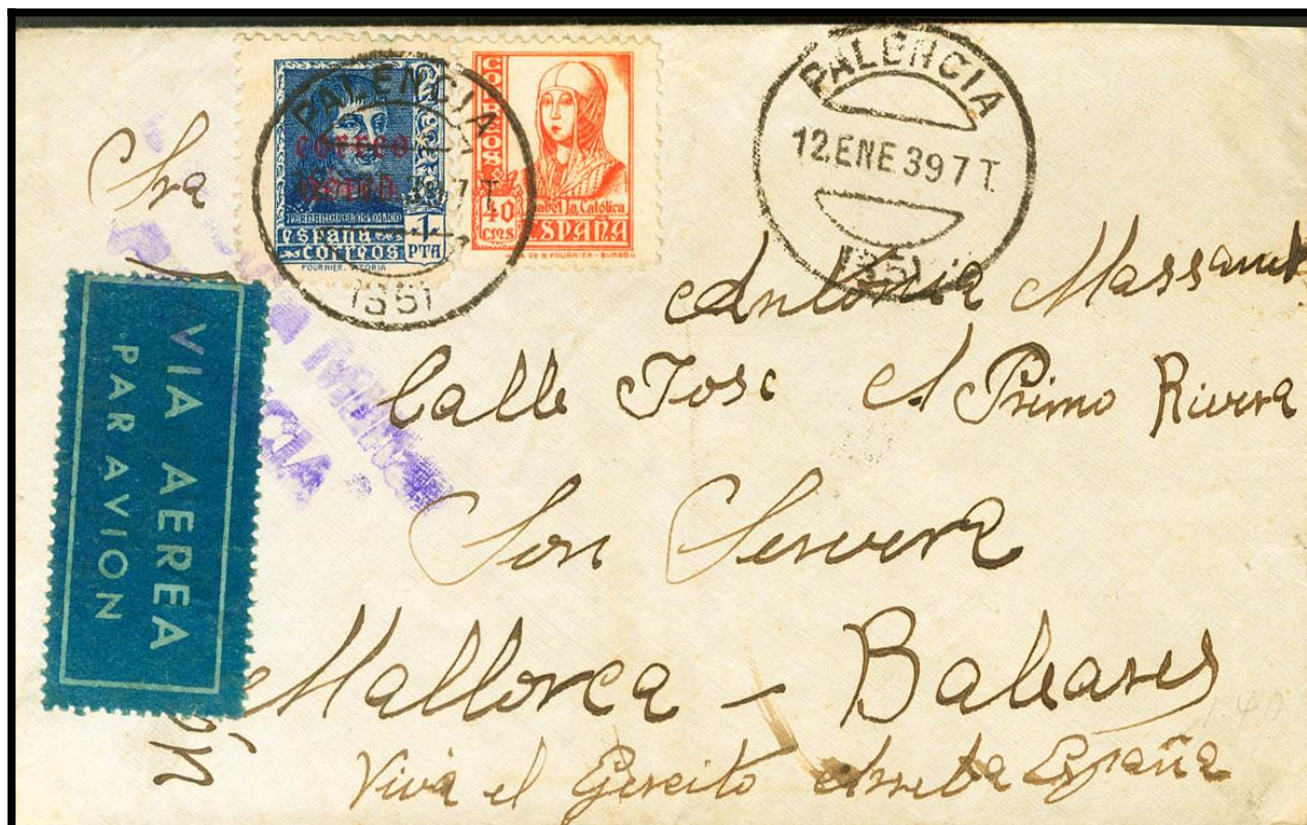 PALENCIA
12.ENE 39 7 T.
1351
PALENCIA
39 7 T.
1351
correo
aéreo
FERNANDO EL CATOLICO
españa
correos
1
PTA
FOURNIER. VITORIA
CORREOS
40
CMS
Isabel la Católica
ESPAÑA
FOURNIER - BURGOS
VIA AEREA
PAR AVION
Sra
Antonia Massanet
Calle Jose A Primo Rivera
Son Servera
Mallorca - Baleares
Viva el Ejercito Arriba España
1.40